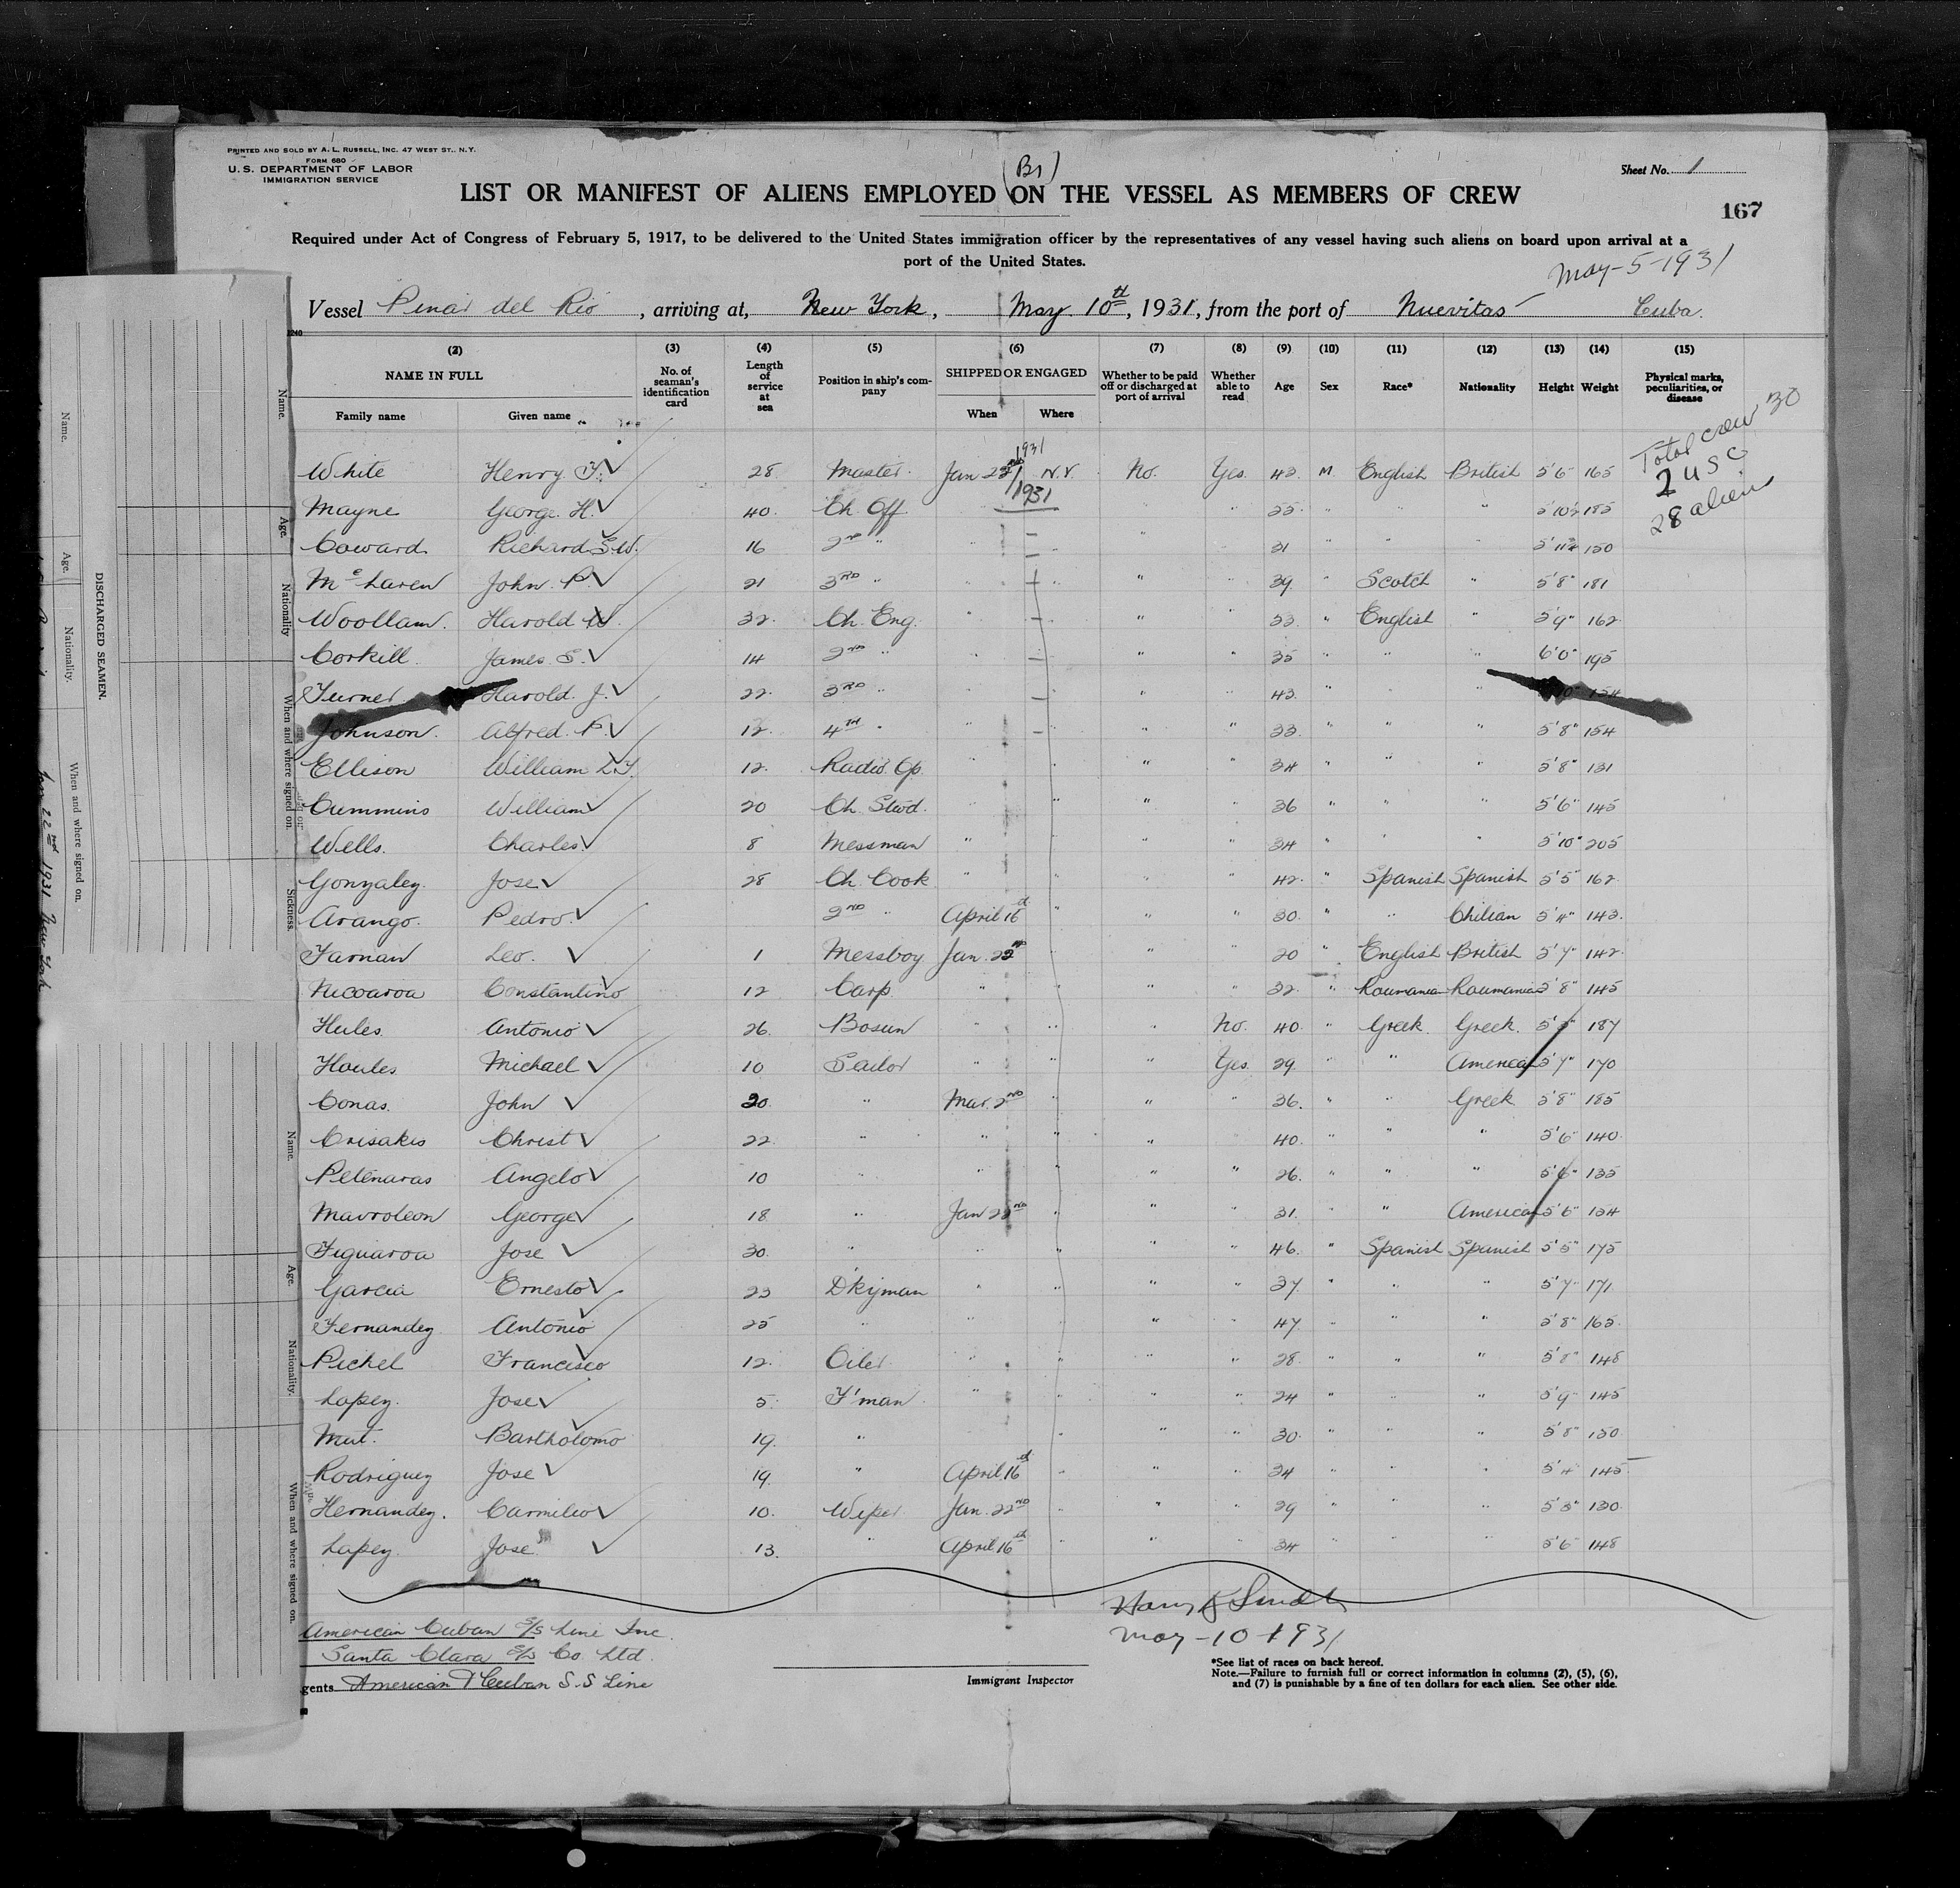 PRINTED AND SOLD BY A. L. RUSSELL, INC. 47 WEST ST., N.Y.
FORM 680
U. S. DEPARTMENT OF LABOR
IMMIGRATION SERVICE
(Br)
Sheet No. 1
LIST OR MANIFEST OF ALIENS EMPLOYED ON THE VESSEL AS MEMBERS OF CREW
167
Required under Act of Congress of February 5, 1917, to be delivered to the United States immigration officer by the representatives of any vessel having such aliens on board upon arrival at a
port of the United States.
May-5-1931
Vessel Pinar del Rio, arriving at, New York, May 10th, 1931, from the port of Nuevitas Cuba.
(2) (3) (4) (5) (6) (7) (8) (9) (10) (11) (12) (13) (14) (15)
NAME IN FULL No. of seaman's identification card Length of service at sea Position in ship's company SHIPPED OR ENGAGED Whether to be paid off or discharged at port of arrival Whether able to read Age Sex Race* Nationality Height Weight Physical marks, peculiarities, or disease
Family name Given name When Where
Total crew 30
2 USC
28 alien
1931
White Henry T. 28 Master Jan 22nd N.Y. No. Yes 43 M English British 5'6 165
1931
Mayne George H. 40 Ch. Off " " " 55 " " " 5'10½ 185
Coward Richard S.W. 16 2nd " " " " 31 " " " 5'11½ 150
McLaren John P. 21 3RD " " " " 39 " Scotch " 5'8" 181
Woollam Harold W. 32 Ch. Eng. " " " 53 " English " 5'9" 162
Corkill James S. 14 2nd " " " " 35 " " " 6'0" 195
Turner Harold J. 22 3RD " " " " 43 " " "
Johnson Alfred P. 12 4TH " " " " 33 " " " 5'8" 154
Ellison William L.T. 12 Radio Op. " " " 34 " " " 5'8" 131
Cummins William 20 Ch. Stwd. " " " " 36 " " " 5'6" 145
Wells Charles 8 Messman " " " " 34 " " " 5'10" 205
Gonzalez Jose 28 Ch. Cook " " " " 42 " Spanish Spanish 5'5" 162
Arango Pedro 2nd " April 16th " " " 30 " " Chilian 5'4" 143
Farnan Leo 1 Messboy Jan. 22nd " " " 20 " English British 5'7" 142
Nicoaroa Constantino 12 Carp. " " " " 32 " Roumanian Roumanian 5'8" 145
Hules Antonio 26 Bosun " " " No. 40 " Greek Greek 5'5" 187
Houles Michael 10 Sailor " " " Yes 29 " " American 5'7" 170
Conas John 20 " Mar. 2nd " " " 36 " " Greek 5'8" 185
Crisakis Christ 22 " " " " " 40 " " " 5'6" 140
Pelenaras Angelo 10 " " " " " 26 " " " 5'6" 135
Mavroleon George 18 " Jan 22nd " " " 31 " " American 5'6" 154
Figuaroa Jose 30 " " " " " 46 " Spanish Spanish 5'5" 175
Garcia Ernesto 23 D'kyman " " " " 37 " " " 5'7" 171
Fernandez Antonio 25 " " " " " 47 " " " 5'8" 165
Pichel Francisco 12 Oiler " " " " 28 " " " 5'8" 148
Lopez Jose 5 F'man " " " " 24 " " " 5'9" 145
Mut Bartholomo 19 " " " " " 30 " " " 5'8" 150
Rodriguez Jose 19 " April 16th " " " 34 " " " 5'4" 145
Hernandez Carmilio 10 Wiper Jan. 22nd " " " 29 " " " 5'3" 130
Lopez Jose 13 " April 16th " " " 34 " " " 5'6" 148
May-10-1931
American Cuban S/S Line Inc.
Santa Clara S/S Co. Ltd.
gents American & Cuban S.S Line
Immigrant Inspector
*See list of races on back hereof.
Note.—Failure to furnish full or correct information in columns (2), (5), (6),
and (7) is punishable by a fine of ten dollars for each alien. See other side.
DISCHARGED SEAMEN.
Name.
Age.
Nationality.
When and where signed on.
Jan 22nd 1931 New York
Name.
Age.
Nationality
When and where signed on.
Sickness.
Name.
Age.
Nationality.
When and where signed on.